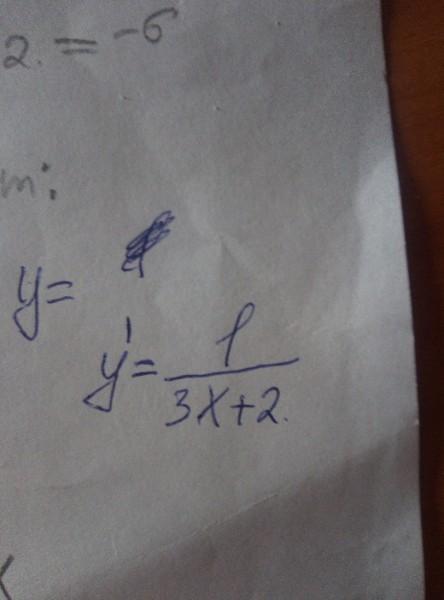 2. = -6
m:
y=
y' = 1 / 3x+2.